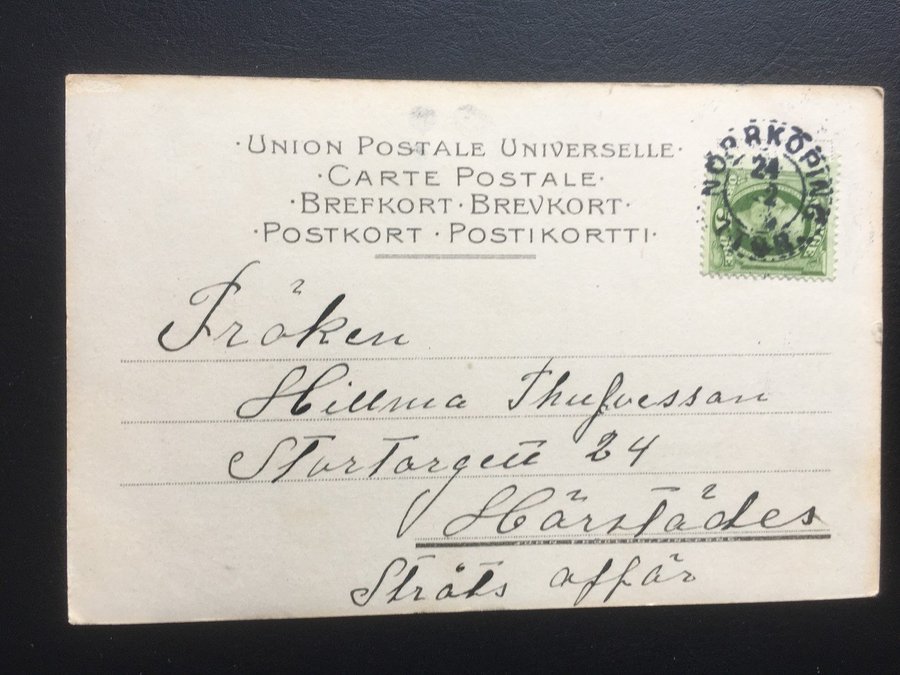 ·UNION POSTALE UNIVERSELLE·
·CARTE POSTALE·
·BREFKORT·BREVKORT·
·POSTKORT·POSTIKORTTI·
NORRKÖPING
24
2
Fröken
Hillma Thufvesson
Stortorget 24
Härstädes
Stråts affär